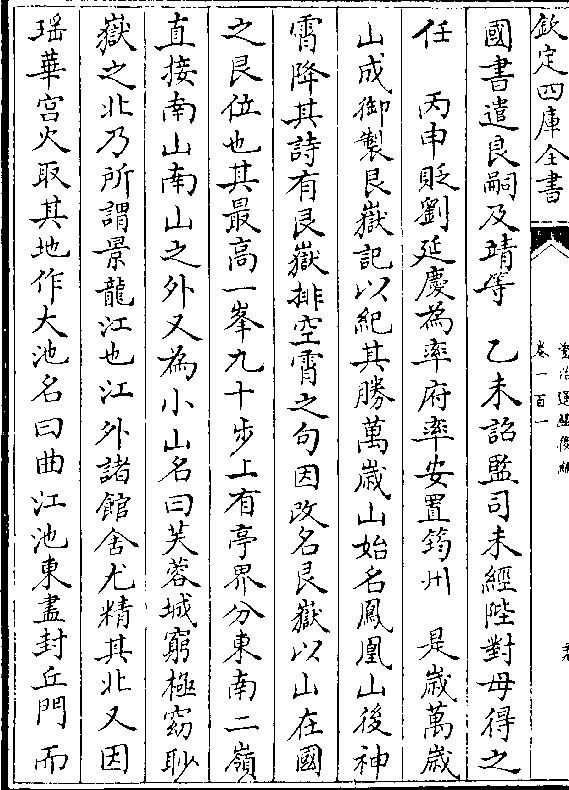 欽定四庫全書
資治通鑑後編
卷一百一
國書遣良嗣及靖等　乙未詔監司未經陛對毋得之
任　丙申貶劉延慶為率府率安置筠州　是歲萬歲
山成御製艮嶽記以紀其勝萬歲山始名鳳凰山後神
霄降其詩有艮嶽排空霄之句因改名艮嶽以山在國
之艮位也其最高一峯九十步上有亭界分東南二嶺
直接南山南山之外又為小山名曰芙蓉城窮極窈眇
嶽之北乃所謂景龍江也江外諸館舍尤精其北又因
瑤華宮火取其地作大池名曰曲江池東盡封丘門而